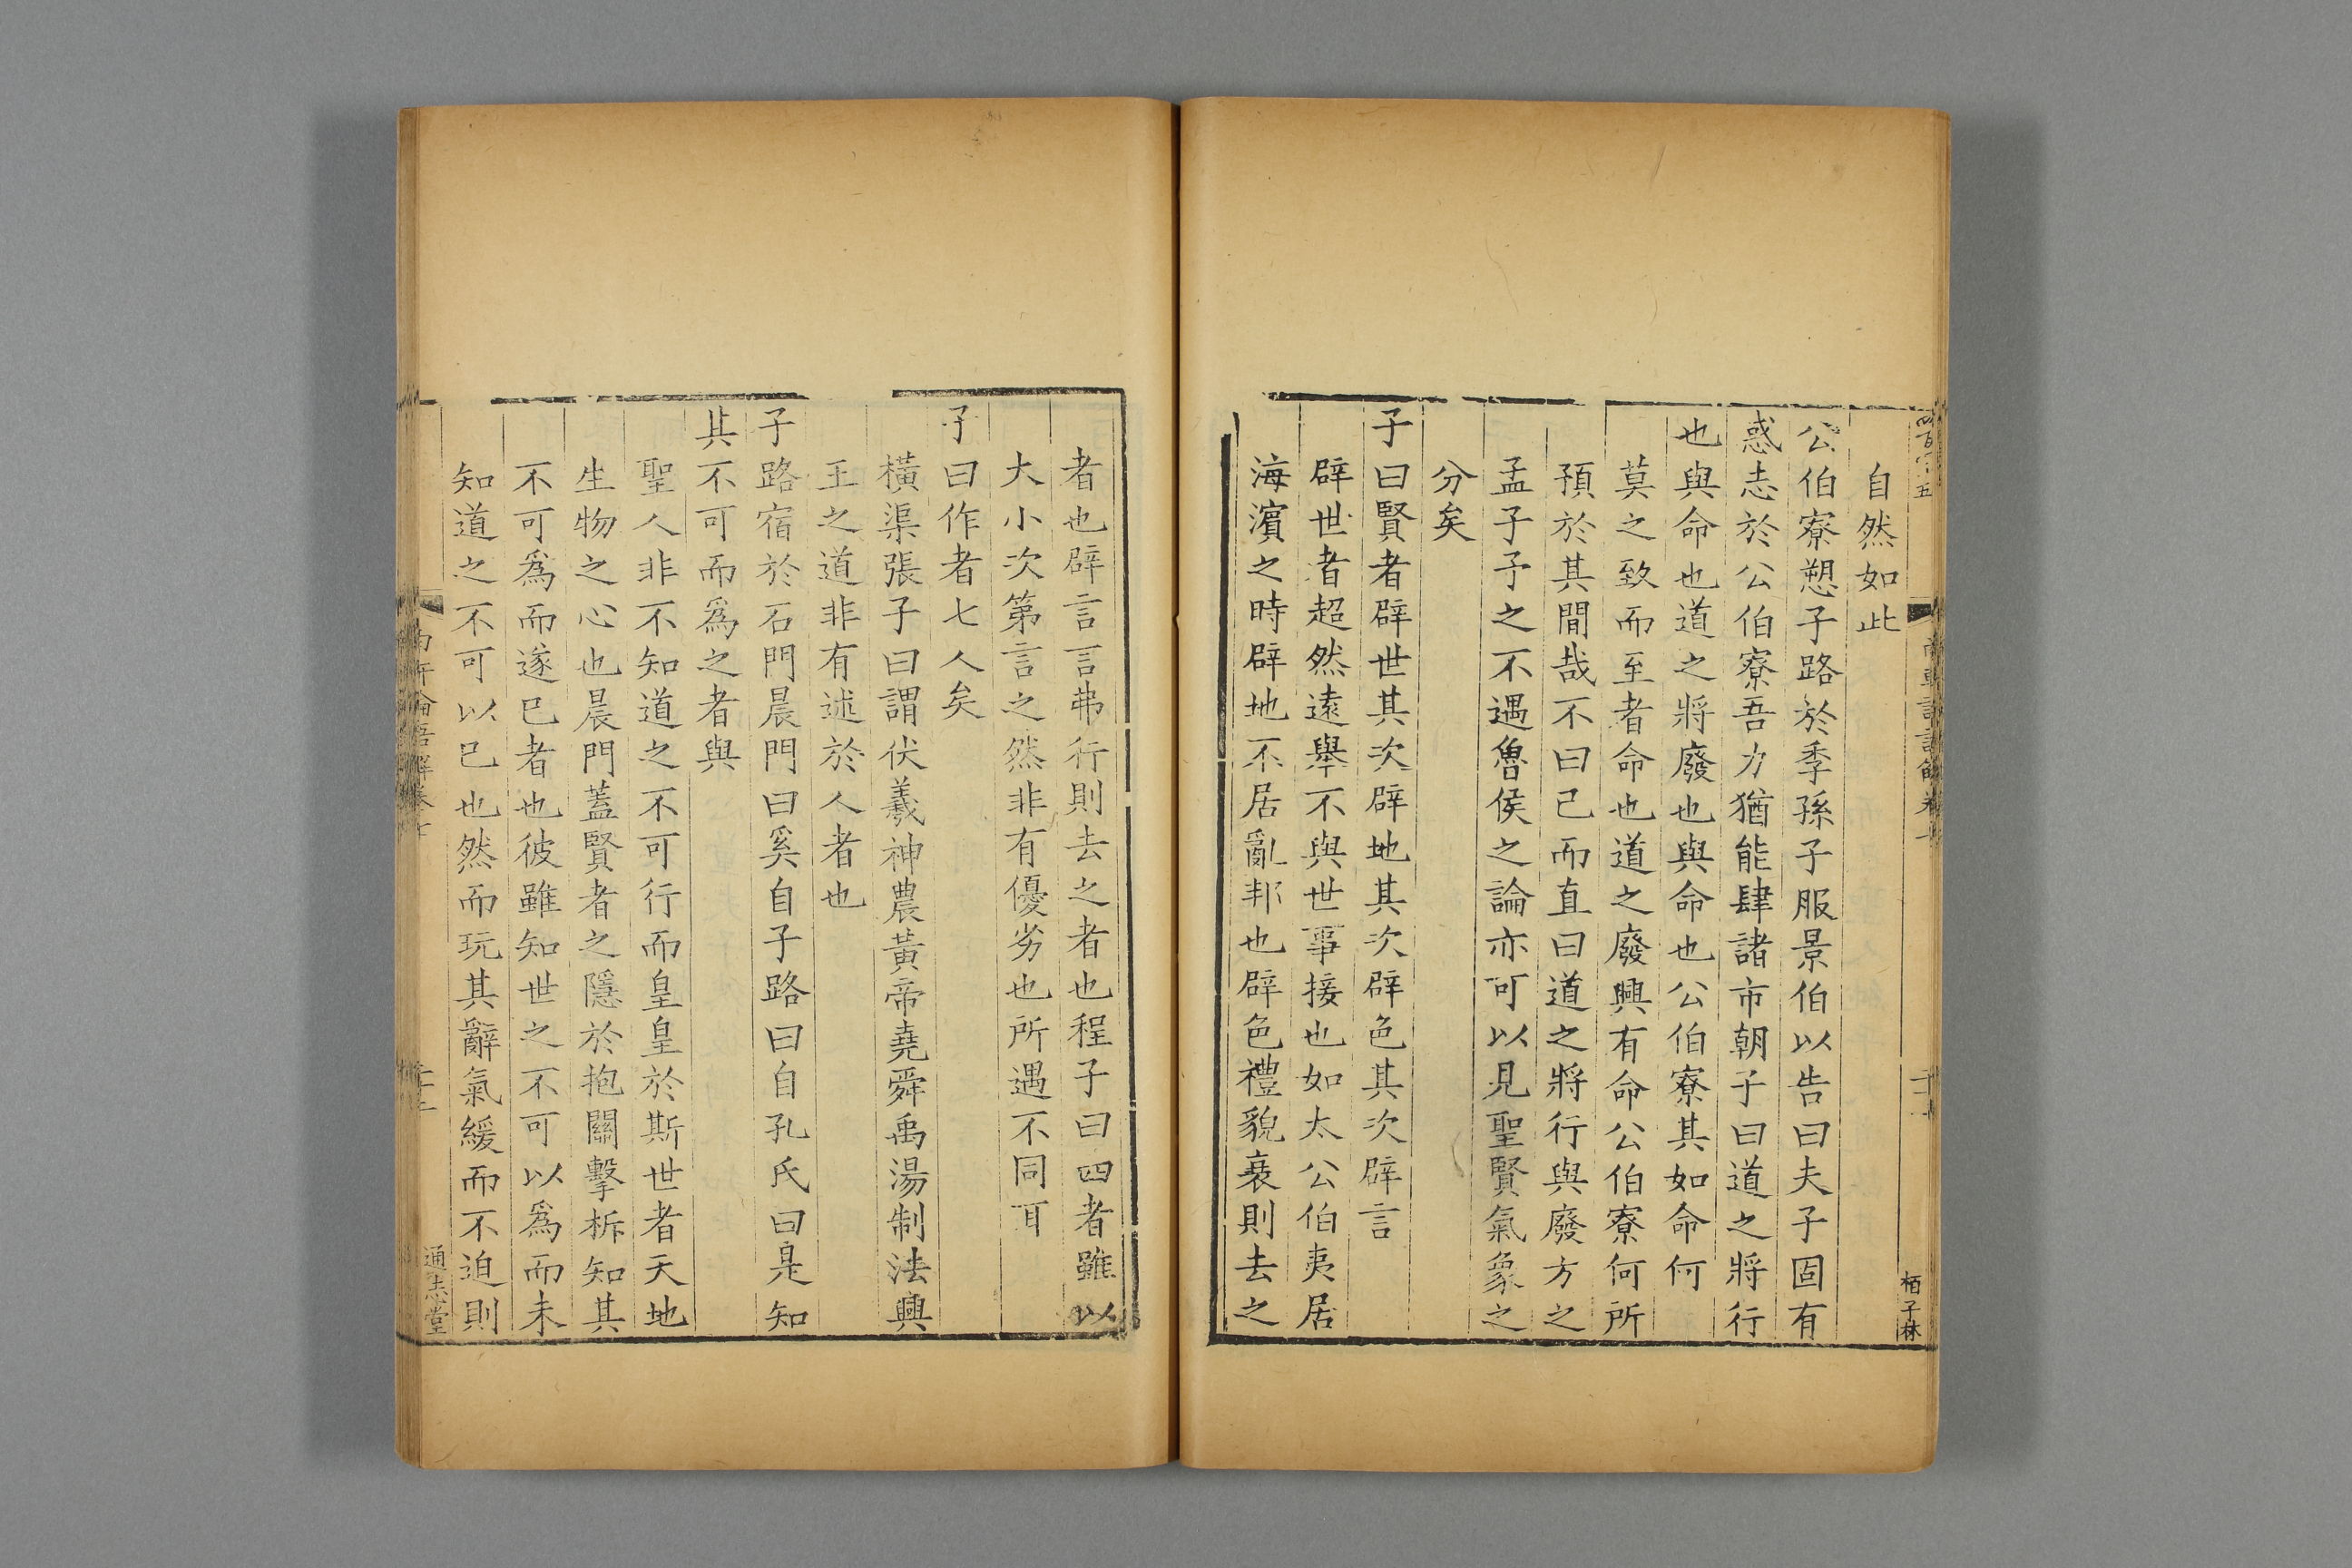 自然如此
公伯寮愬子路於季孫子服景伯以告曰夫子固有
惑志於公伯寮吾力猶能肆諸市朝子曰道之將行
也與命也道之將廢也與命也公伯寮其如命何
莫之致而至者命也道之廢興有命公伯寮何所
預於其間哉不曰己而直曰道之將行與廢方之
孟子子之不遇魯侯之論亦可以見聖賢氣象之
分矣
子曰賢者辟世其次辟地其次辟色其次辟言
辟世者超然遠舉不與世事接也如太公伯夷居
海濱之時辟地不居亂邦也辟色禮貌衰則去之
栢子林
者也辟言言弗行則去之者也程子曰四者雖以
大小次第言之然非有優劣也所遇不同耳
子曰作者七人矣
橫渠張子曰謂伏羲神農黃帝堯舜禹湯制法興
王之道非有述於人者也
子路宿於石門晨門曰奚自子路曰自孔氏曰是知
其不可而爲之者與
聖人非不知道之不可行而皇皇於斯世者天地
生物之心也晨門蓋賢者之隱於抱關擊柝知其
不可爲而遂已者也彼雖知世之不可以爲而未
知道之不可以已也然而玩其辭氣緩而不迫則
通志堂